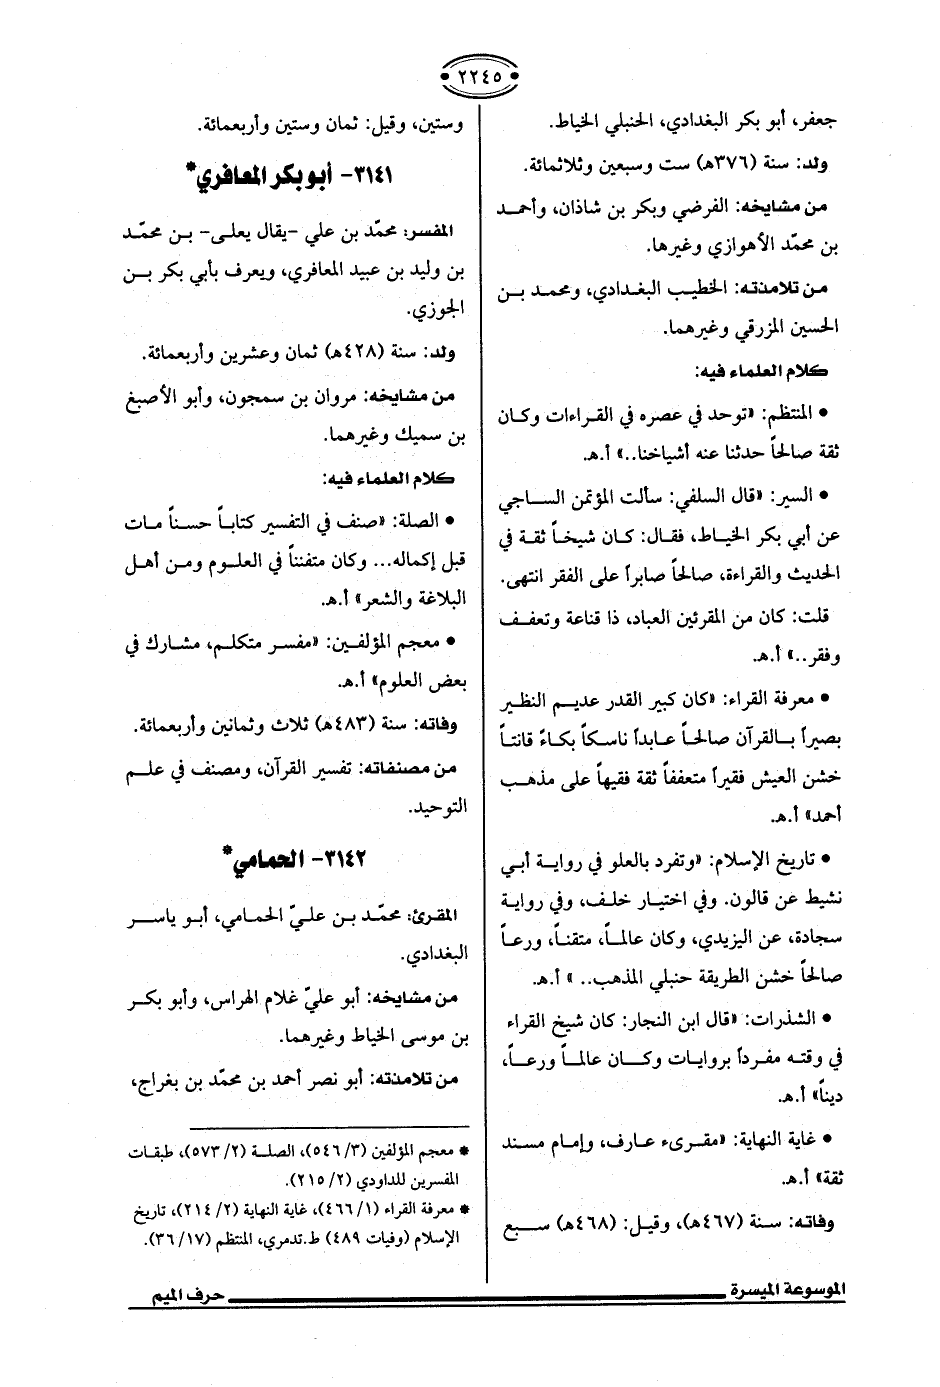 ٢٢٤٥
جعفر، أبو بكر البغدادي، الحنبلي الخياط.
ولد: سنة (٣٧٦هـ) ست وسبعين وثلاثمائة.
من مشايخه: الفرضي وبكر بن شاذان، وأحمد
بن محمّد الأهوازي وغيرها.
من تلامذته: الخطيب البغدادي، ومحمد بن
الحسين المزرقي وغيرهما.
كلام العلماء فيه:
• المنتظم: «توحد في عصره في القراءات وكان
ثقة صالحاً حدثنا عنه أشياخنا..» أ.هـ.
• السير: «قال السلفي: سألت المؤتمن الساجي
عن أبي بكر الخياط، فقال: كان شيخاً ثقة في
الحديث والقراءة، صالحاً صابراً على الفقر انتهى.
قلت: كان من المقرئين العباد، ذا قناعة وتعفف
وفقر..» أ.هـ.
• معرفة القراء: «كان كبير القدر عديم النظير
بصيراً بالقرآن صالحاً عابداً ناسكاً بكاءً قانتاً
خشن العيش فقيراً متعففاً ثقة فقيهاً على مذهب
أحمد» أ.هـ.
• تاريخ الإسلام: «وتفرد بالعلو في رواية أبي
نشيط عن قالون. وفي اختيار خلف، وفي رواية
سجادة، عن اليزيدي، وكان عالماً، متقناً، ورعاً
صالحاً خشن الطريقة حنبلي المذهب.. » أ.هـ.
• الشذرات: «قال ابن النجار: كان شيخ القراء
في وقته مفرداً بروايات وكان عالماً ورعاً،
ديناً» أ.هـ.
• غاية النهاية: «مقرىء عارف، وإمام مسند
ثقة» أ.هـ.
وفاته: سنة (٤٦٧هـ)، وقيل: (٤٦٨هـ) سبع
وستين، وقيل: ثمان وستين وأربعمائة.
٣١٤١- أبو بكر المعافري*
المفسر: محمّد بن علي -يقال يعلى- بن محمّد
بن وليد بن عبيد المعافري، ويعرف بأبي بكر بن
الجوزي.
ولد: سنة (٤٢٨هـ) ثمان وعشرين وأربعمائة.
من مشايخه: مروان بن سمجون، وأبو الأصبغ
بن سميك وغيرهما.
كلام العلماء فيه:
• الصلة: «صنف في التفسير كتاباً حسناً مات
قبل إكماله... وكان متفنناً في العلوم ومن أهل
البلاغة والشعر» أ.هـ.
• معجم المؤلفين: «مفسر متكلم، مشارك في
بعض العلوم» أ.هـ.
وفاته: سنة (٤٨٣هـ) ثلاث وثمانين وأربعمائة.
من مصنفاته: تفسير القرآن، ومصنف في علم
التوحيد.
٣١٤٢- الحمامي*
المقرئ: محمّد بن عليّ الحمامي، أبو ياسر
البغدادي.
من مشايخه: أبو عليّ غلام الهراس، وأبو بكر
بن موسى الخياط وغيرهما.
من تلامذته: أبو نصر أحمد بن محمّد بن بغراج،
* معجم المؤلفين (٣/ ٥٤٦)، الصلة (٢/ ٥٧٣)، طبقات
المفسرين للداودي (٢/ ٢١٥).
* معرفة القراء (١/ ٤٦٦)، غاية النهاية (٢/ ٢١٤)، تاريخ
الإسلام (وفيات ٤٨٩) ط.تدمري، المنتظم (١٧/ ٣٦).
الموسوعة الميسرة حرف الميم